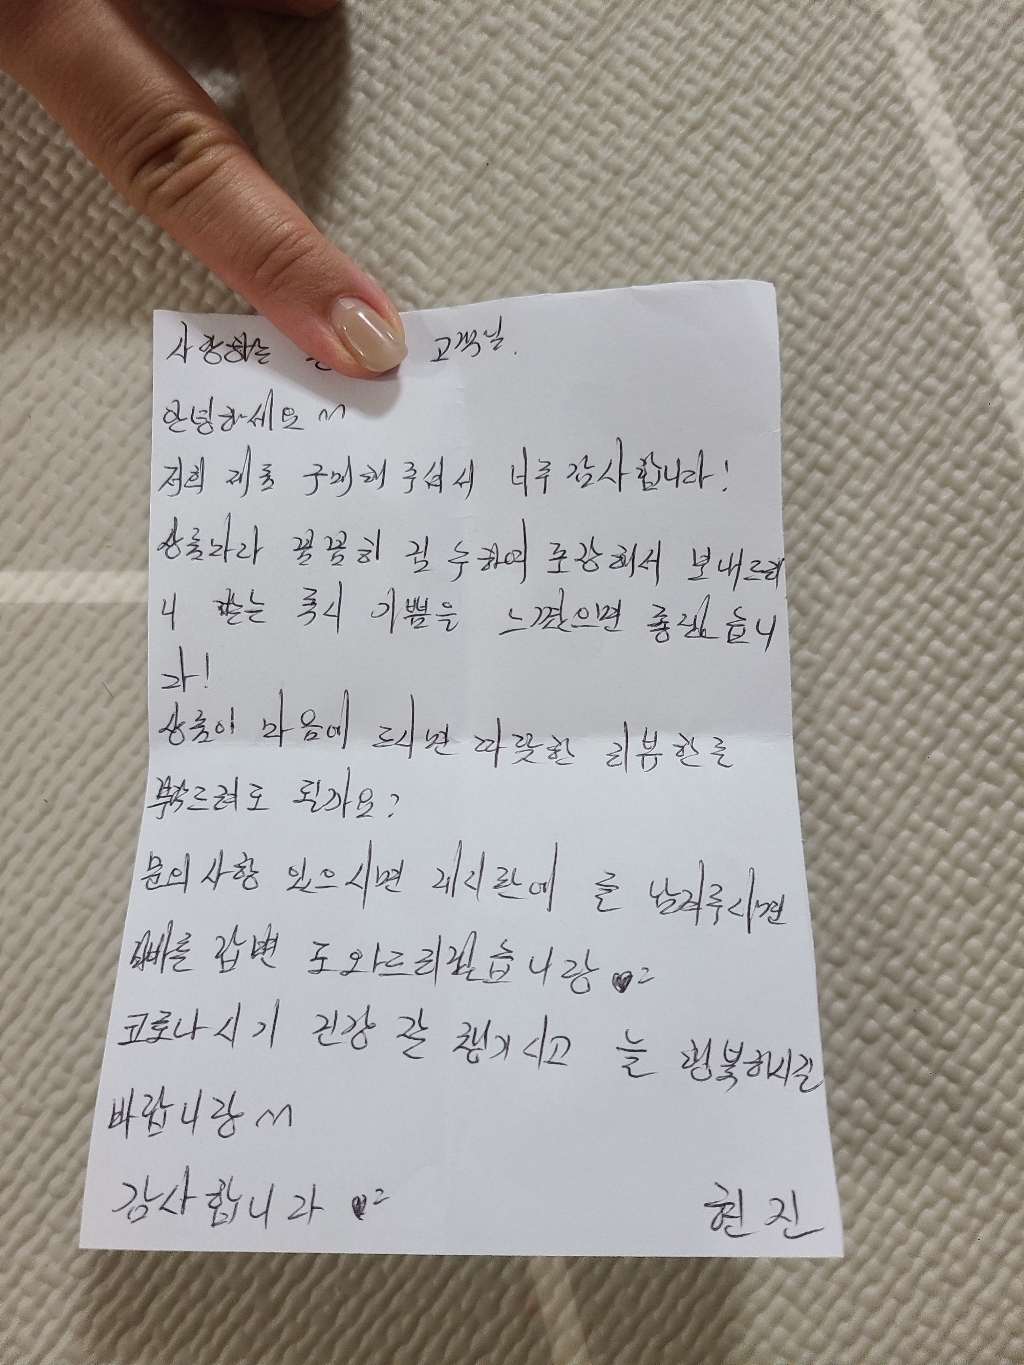 사랑하는 고객님.
안녕하세요 ^^
저희 제품 구매해주셔서 너무 감사합니다!
상품마다 꼼꼼히 검수하여 포장해서 보내드리
니 받는 즉시 기쁨을 느꼈으면 좋겠습니
다!
상품이 마음에 드시면 따뜻한 리뷰 한글
부탁드려도 될까요?
문의사항 있으시면 게시판에 글 남겨주시면
답변 도와드리겠습니당 ♥
코로나 시기 건강 잘 챙기시고 늘 행복하시길
바랍니당 ^^
감사합니다 ♥ 현진